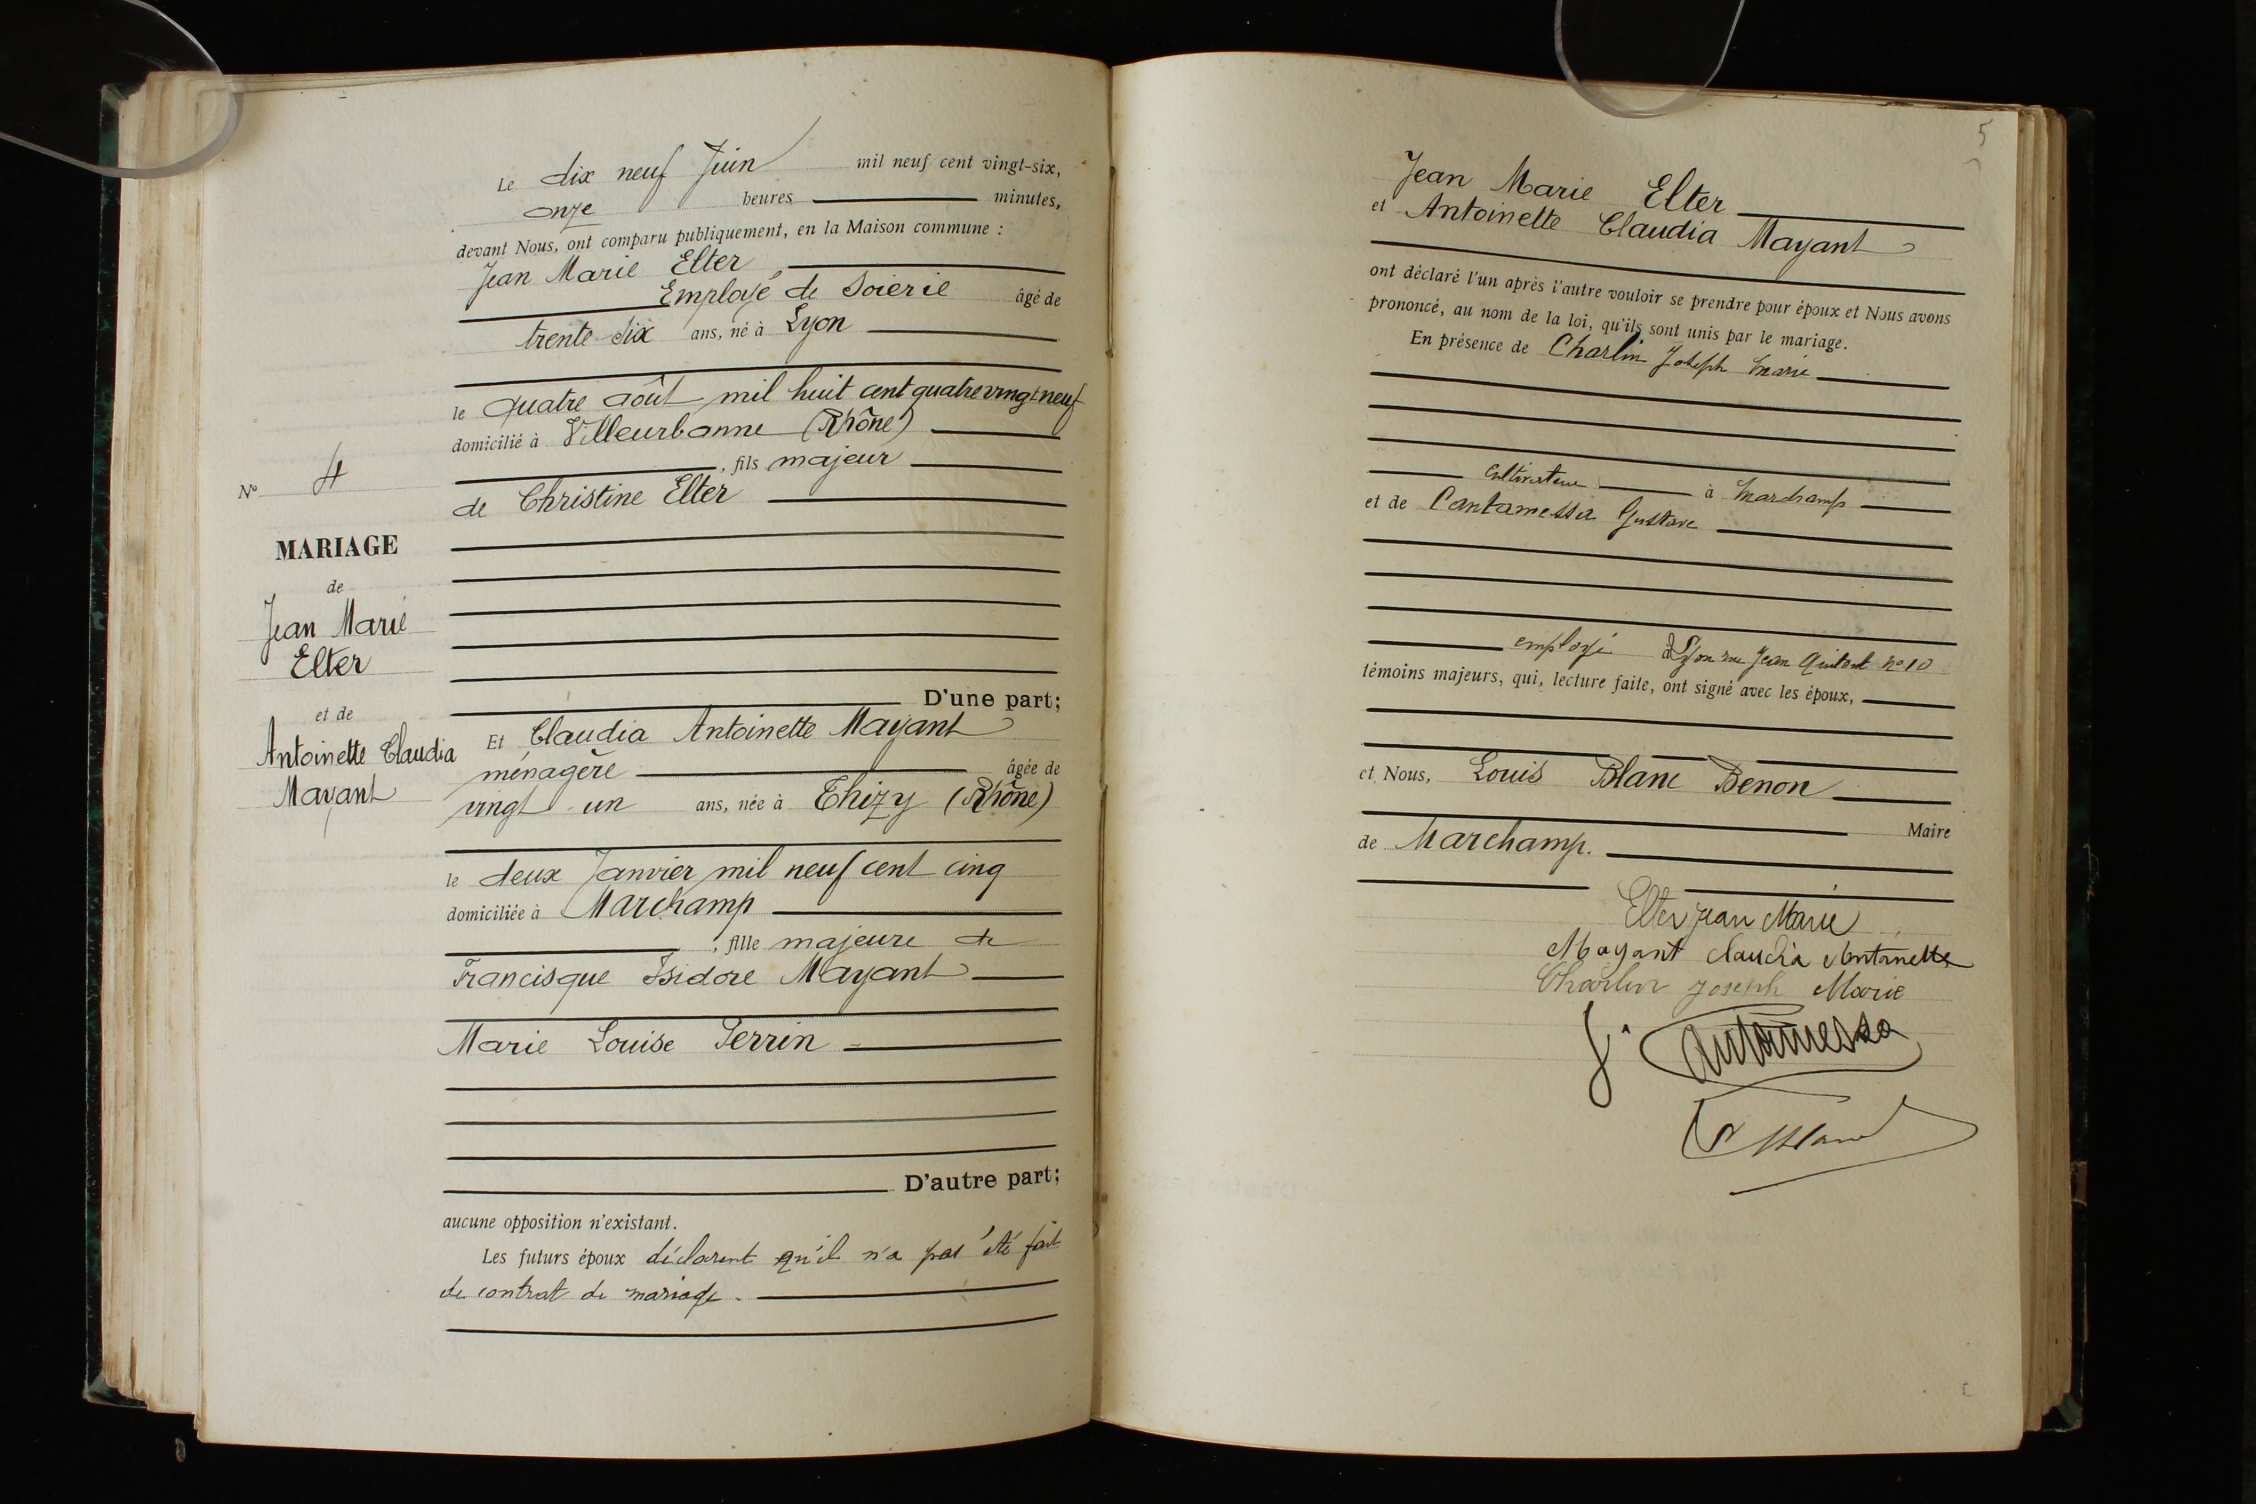 Le dix neuf Juin mil neuf cent vingt-six,
onze heures minutes,
devant Nous, ont comparu publiquement, en la Maison commune :
Jean Marie Elter
Employé de Soierie âgé de
trente six ans, né à Lyon
le quatre août mil huit cent quatre vingt neuf
domicilié à Villeurbanne (Rhône)
, fils majeur
de Christine Elter
D'une part;
Et Claudia Antoinette Mayant
ménagère âgée de
vingt un ans, née à Thizy (Rhône)
le deux Janvier mil neuf cent cinq
domiciliée à Marchamp
, fille majeure de
Francisque Isidore Mayant
Marie Louise Perrin
D'autre part;
aucune opposition n'existant.
Les futurs époux déclarent qu'il n'a pas été fait
de contrat de mariage.
No 4
MARIAGE
de
Jean Marie
Elter
et de
Antoinette Claudia
Mayant
5
Jean Marie Elter
et Antoinette Claudia Mayant
ont déclaré l'un après l'autre vouloir se prendre pour époux et Nous avons
prononcé, au nom de la loi, qu'ils sont unis par le mariage.
En présence de Charlin Joseph Marie
Cultivateur à Marchamp
et de Cantamessa Gustave
employé à Lyon rue Jean no 10
témoins majeurs, qui, lecture faite, ont signé avec les époux,
et Nous, Louis Blanc Benon
Maire
de Marchamp.
Elter Jean Marie
Mayant Claudia Antoinette
Charlin Joseph Marie
G. Cantamessa
L Blanc